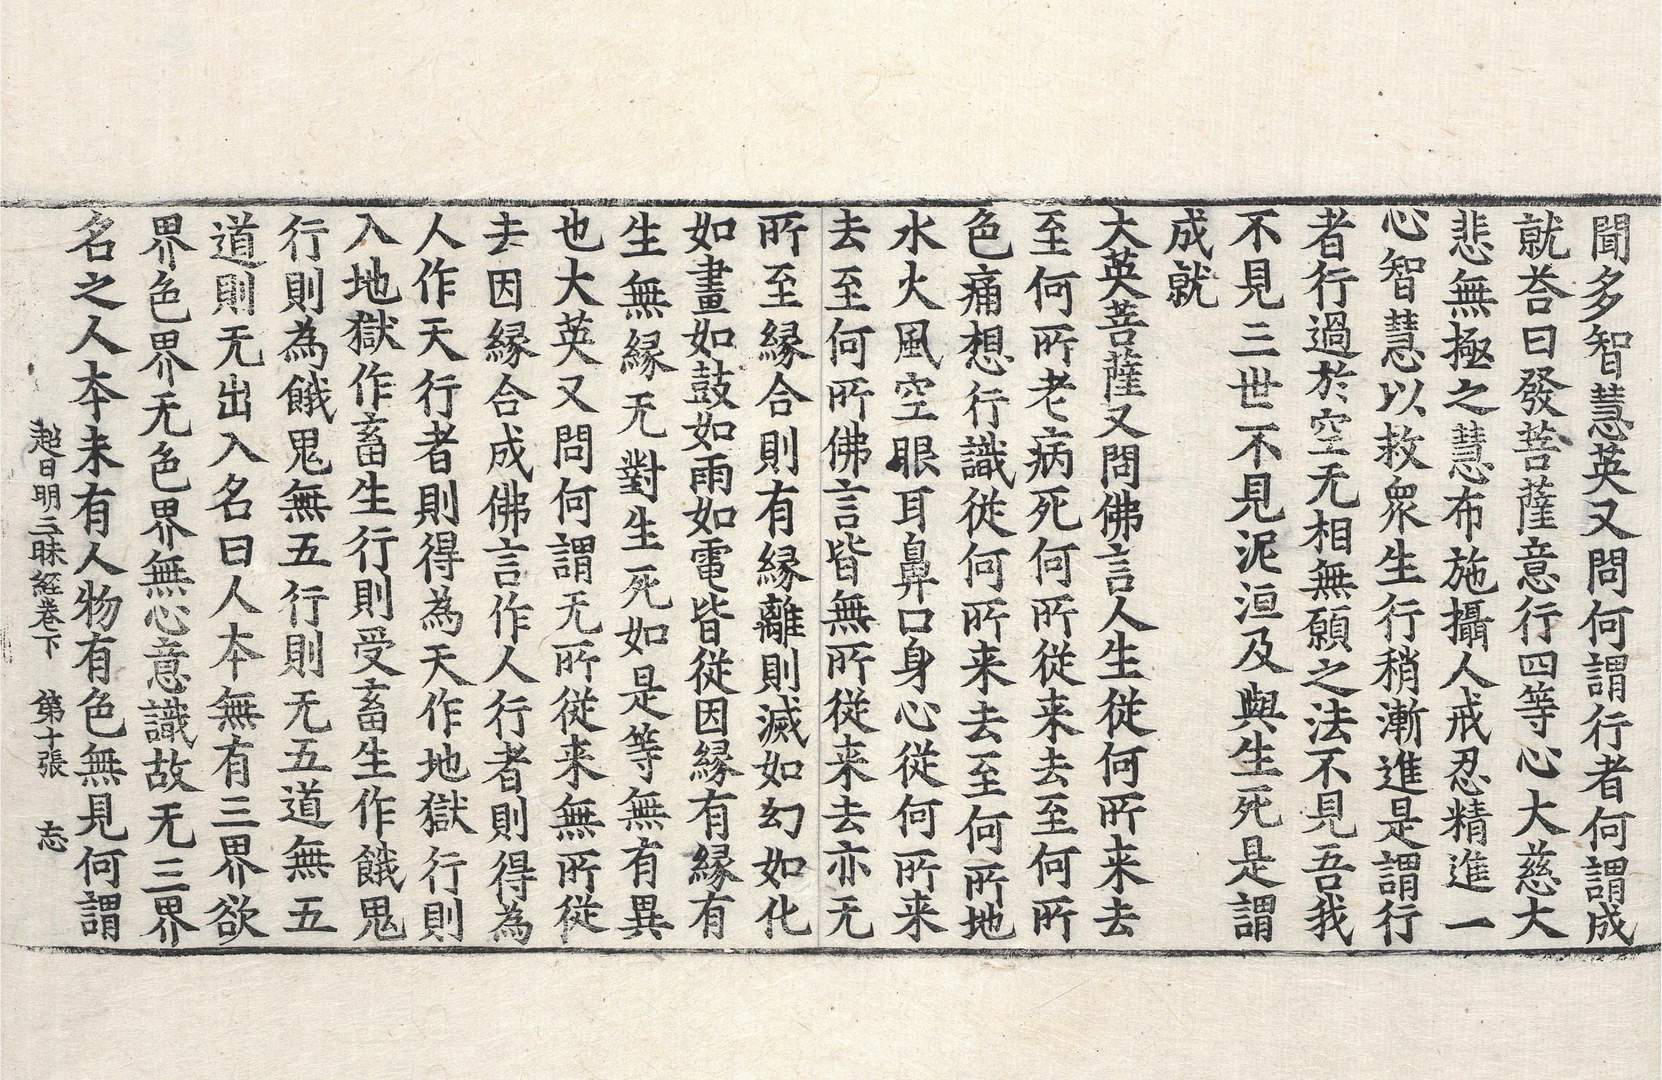 聞多智慧英又問何謂行者何謂成
就荅曰發菩薩意行四等心大慈大
悲無極之慧布施攝人戒忍精進一
心智慧以救衆生行稍漸進是謂行
者行過於空无相無願之法不見吾我
不見三世不見泥洹及與生死是謂
成就
大英菩薩又問佛言人生從何所来去
至何所老病死何所從来去至何所
色痛想行識從何所来去至何所地
水火風空眼耳鼻口身心從何所来
去至何所佛言皆無所從来去亦无
所至縁合則有縁離則滅如幻如化
如畫如鼓如雨如電皆從因縁有縁有
生無縁无對生死如是等無有異
也大英又問何謂无所從来無所從
去因縁合成佛言作人行者則得為
人作天行者則得為天作地獄行則
入地獄作畜生行則受畜生作餓鬼
行則為餓鬼無五行則无五道無五
道則无出入名曰人本無有三界欲
界色界无色界無心意識故无三界
名之人本未有人物有色無見何謂
超日明三昧經卷下 第十張 忘